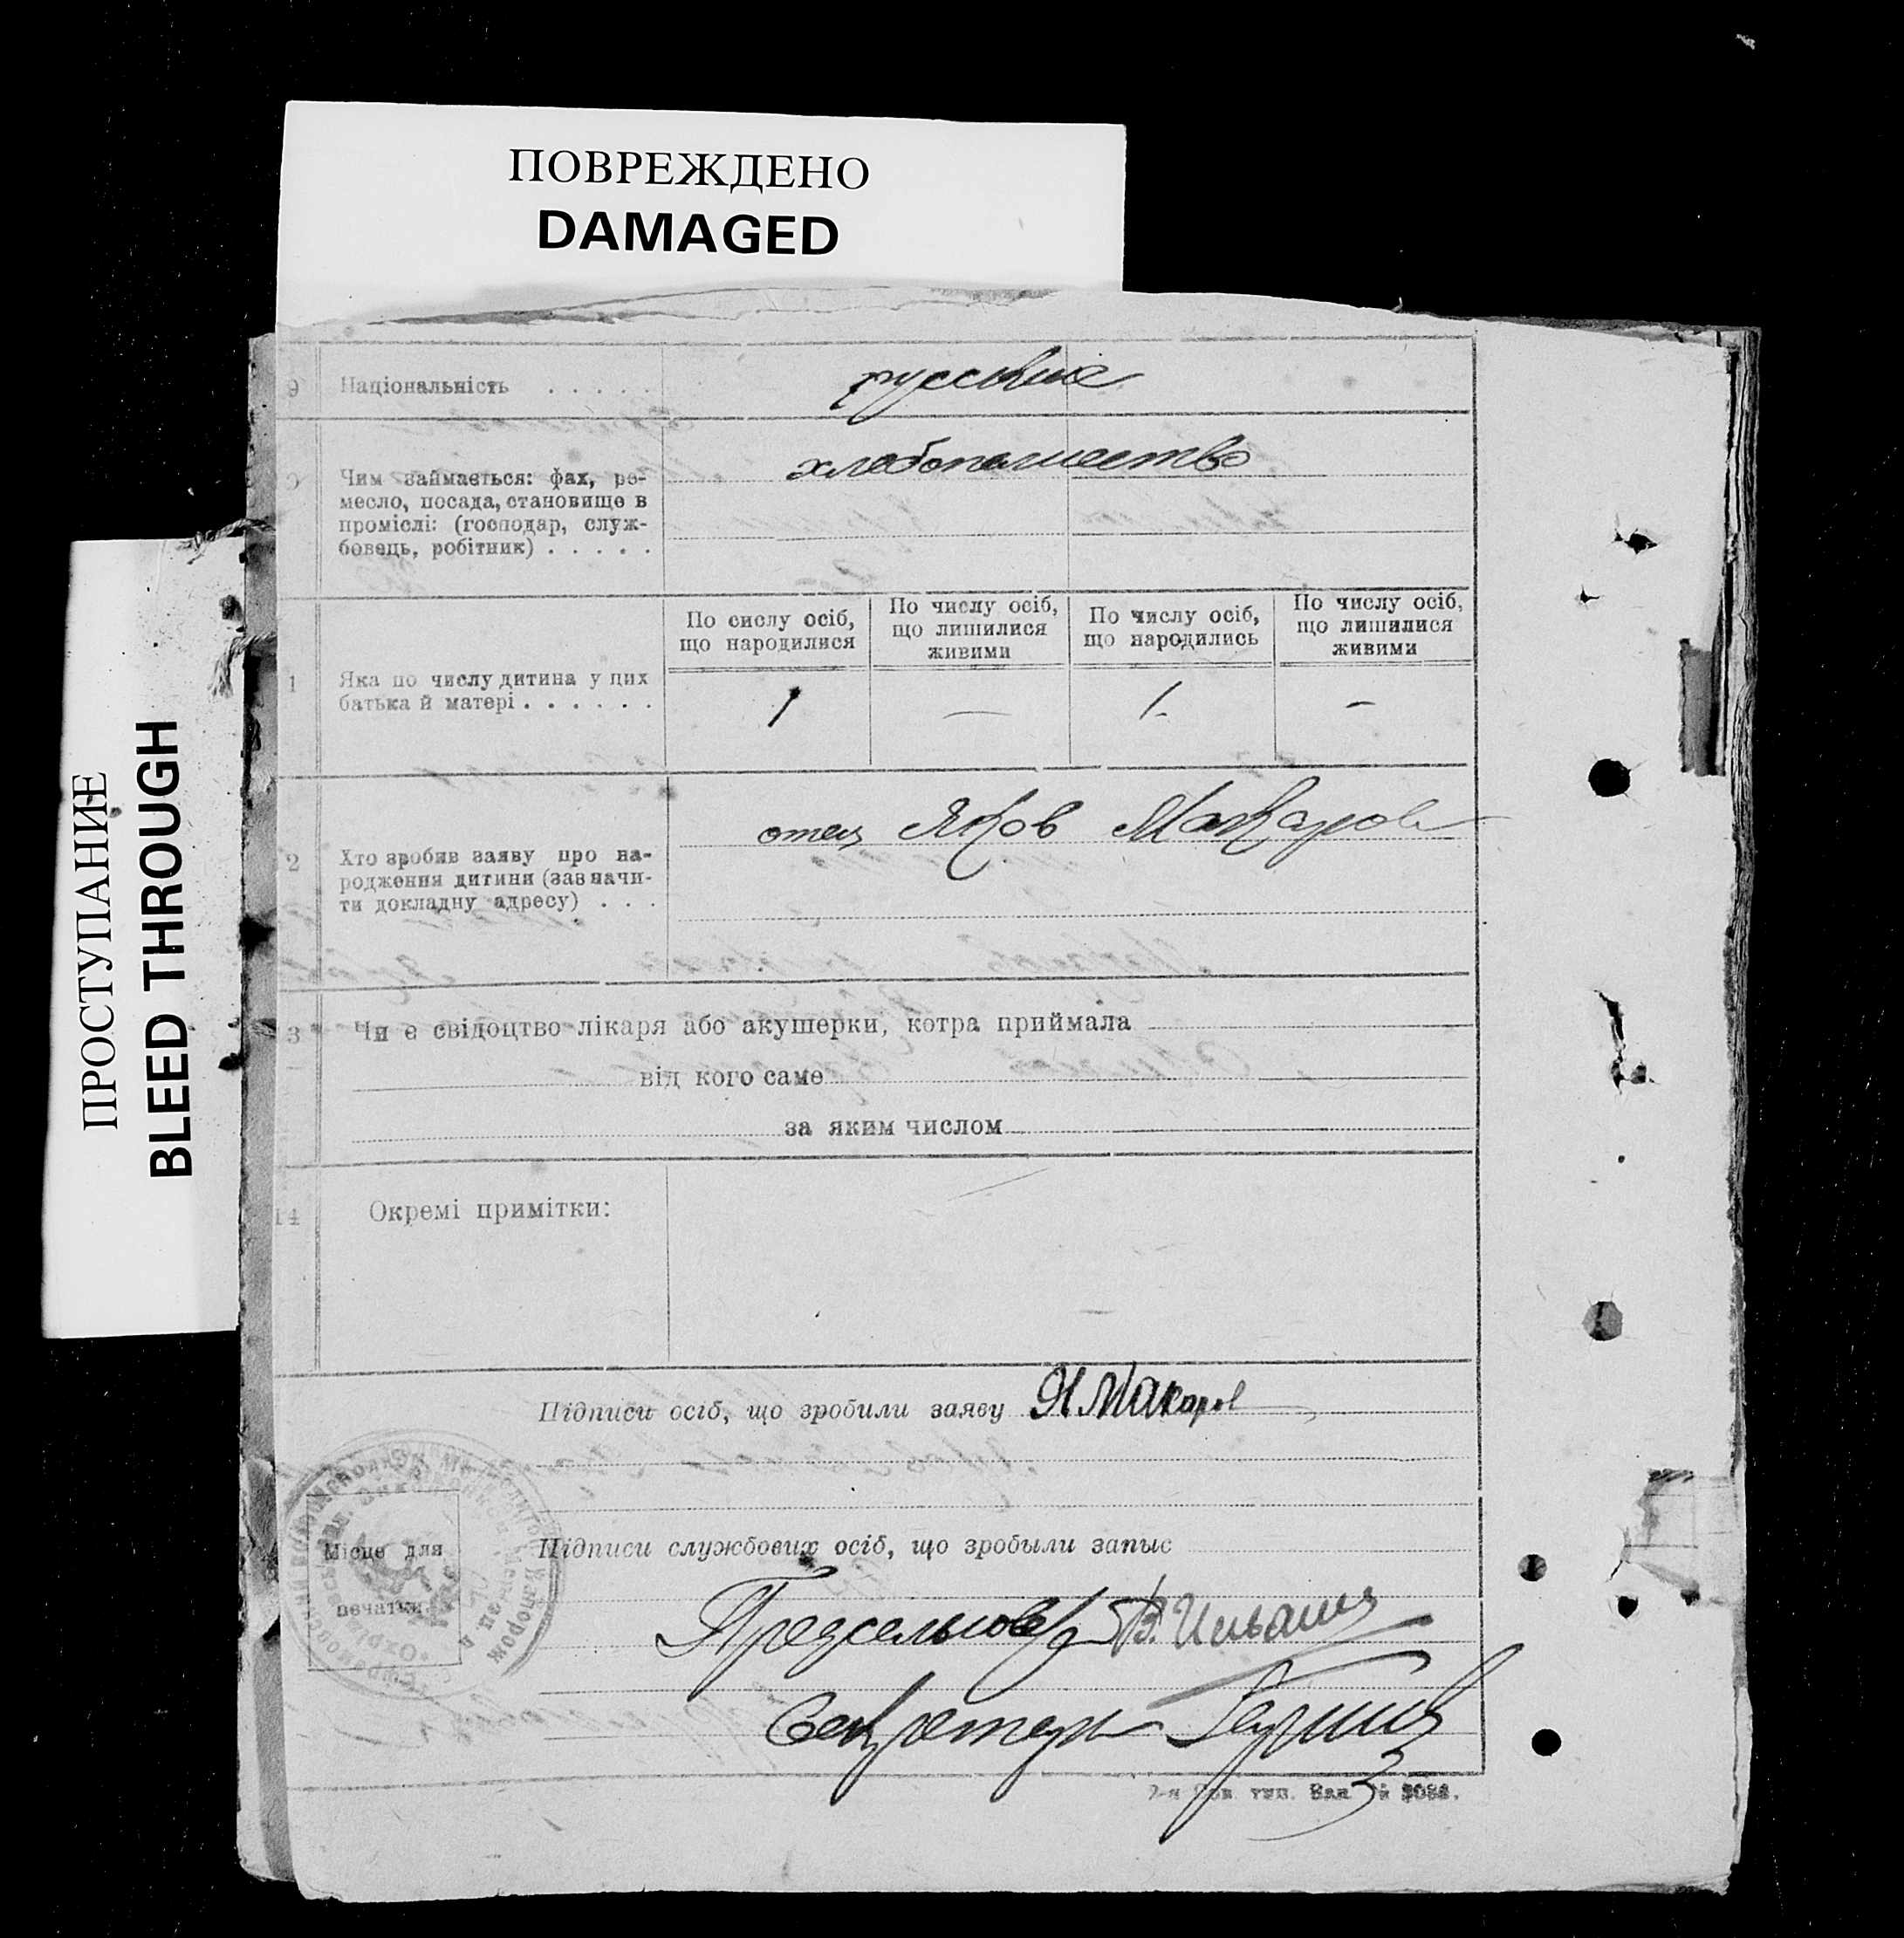 ПОВРЕЖДЕНО
DAMAGED
ПРОСТУПАНИЕ
BLEED THROUGH
9 Національність . . . . . русские
Чим займається: фах, ре-
месло, посада, становище в
проміслі: (господар, служ-
бовець, робітник) . . . . .
хлебопашество
По сислу осіб,
що народилися
По числу осіб,
що лишилися
живими
По числу осіб,
що народились
По числу осіб,
що лишилися
живими
1 Яка по числу дитина у цих
батька й матері . . . . . .
1 — 1. –
2 Хто зробив заяву про на-
родження дитини (зазначи-
ти докладну адресу) . . .
отец Яков Макаров
3 Чи є свідоцтво лікаря або акушерки, котра приймала
від кого саме
за яким числом
14 Окремі примітки:
Підписи осіб, що зробили заяву Я Макаров
Підписи службових осіб, що зробыли запыс
Місце для
печатки
Предсельсовета
Секретарь